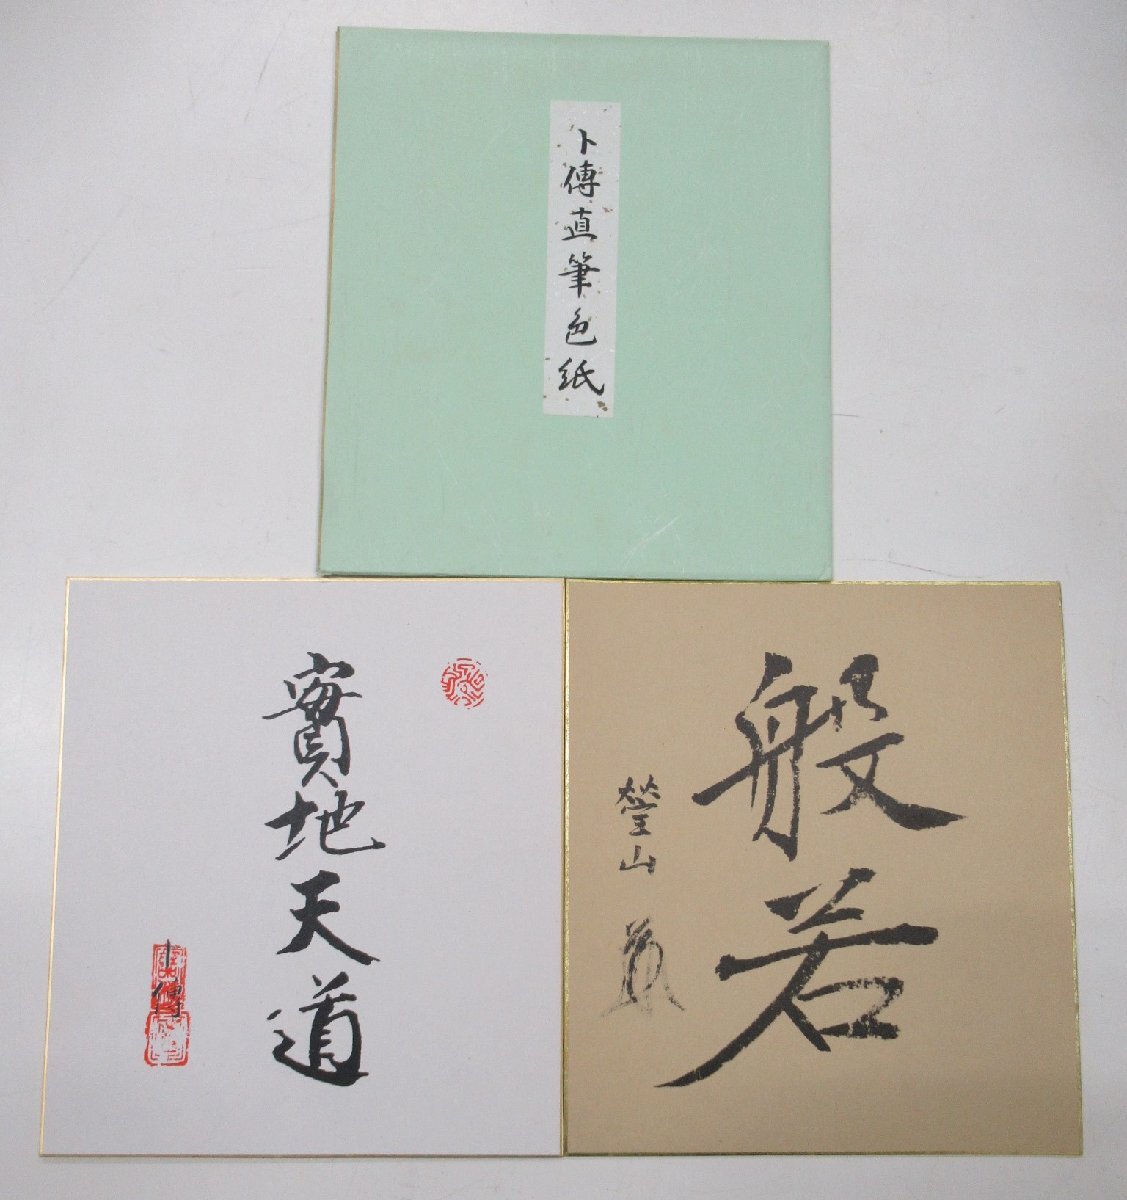 卜傳直筆色紙
實地天道
卜傳
般若
瑩山